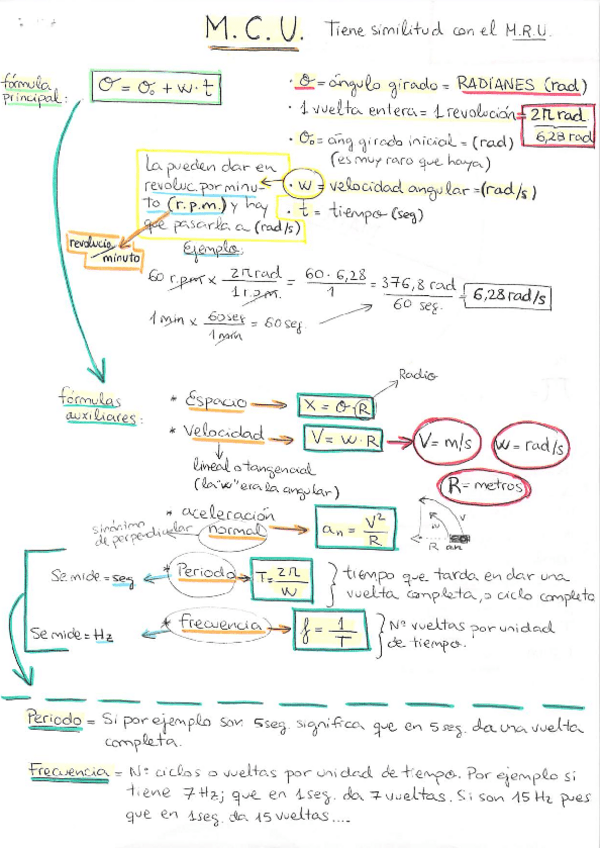 M.C.U. Tiene similitud con el M.R.U.
fórmula
principal:
σ = σ₀ + w·t
· σ = ángulo girado = RADIANES (rad)
· 1 vuelta entera = 1 revolución = 2π rad
6,28 rad
· σ₀ = áng girado inicial = (rad)
(es muy raro que haya)
La pueden dar en
revoluc. por minu-
to (r.p.m.) y hay
que pasarla a (rad/s)
· w = velocidad angular = (rad/s)
· t = tiempo (seg)
revolucio
minuto
Ejemplo:
60 r.p.m × 2π rad / 1 r.p.m. = 60 · 6,28 / 1 = 376,8 rad / 60 seg. = 6,28 rad/s
1 min × 60 seg / 1 min = 60 seg
Radio
fórmulas
auxiliares:
* Espacio → X = σ·R
* Velocidad → V = w·R → V = m/s w = rad/s
lineal o tangencial
(la "w" era la angular)
R = metros
* aceleración
normal → aₙ = V² / R
sinónimo
de perpendicular
R w V
R an
Se mide = seg ← * Periodo → T = 2π / w
tiempo que tarda en dar una
vuelta completa, o ciclo completo
Se mide = Hz ← * frecuencia → f = 1 / T
Nº vueltas por unidad
de tiempo.
Periodo = Si por ejemplo son 5 seg. significa que en 5 seg. da una vuelta
completa.
Frecuencia = Nº ciclos o vueltas por unidad de tiempo. Por ejemplo si
tiene 7 Hz; que en 1 seg. da 7 vueltas. Si son 15 Hz pues
que en 1 seg. da 15 vueltas....